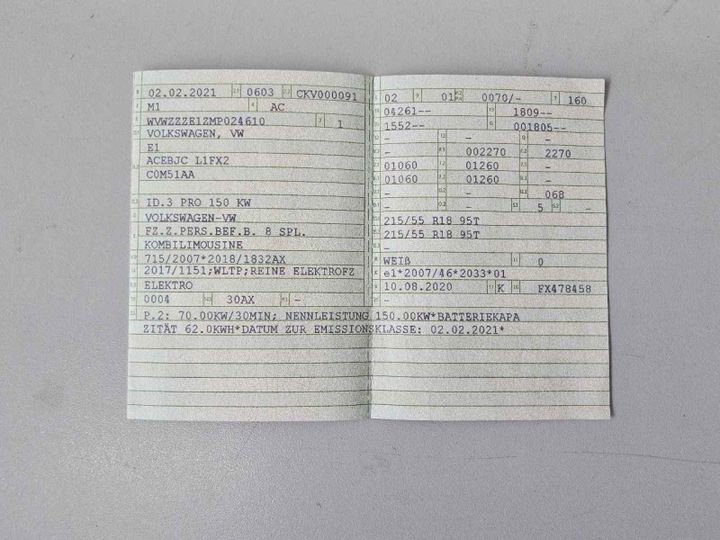 02.02.2021 0603 CKV000091
M1 AC
WVWZZZE1ZMP024610 1
VOLKSWAGEN, VW
E1
ACEBJC L1FX2
C0M51AA
ID.3 PRO 150 KW
VOLKSWAGEN-VW
FZ.Z.PERS.BEF.B. 8 SPL.
KOMBILIMOUSINE
715/2007*2018/1832AX
2017/1151;WLTP;REINE ELEKTROFZ
ELEKTRO
0004 30AX -
02 01 0070/- 160
04261-- 1809--
1552-- 001805--
- - -
- 002270 2270
01060 01260 -
01060 01260 -
- - 068
- - 5 -
215/55 R18 95T
215/55 R18 95T
-
WEIß 0
e1*2007/46*2033*01
10.08.2020 K FX478458
-
P.2: 70.00KW/30MIN; NENNLEISTUNG 150.00KW*BATTERIEKAPA
ZITÄT 62.0KWH*DATUM ZUR EMISSIONSKLASSE: 02.02.2021*